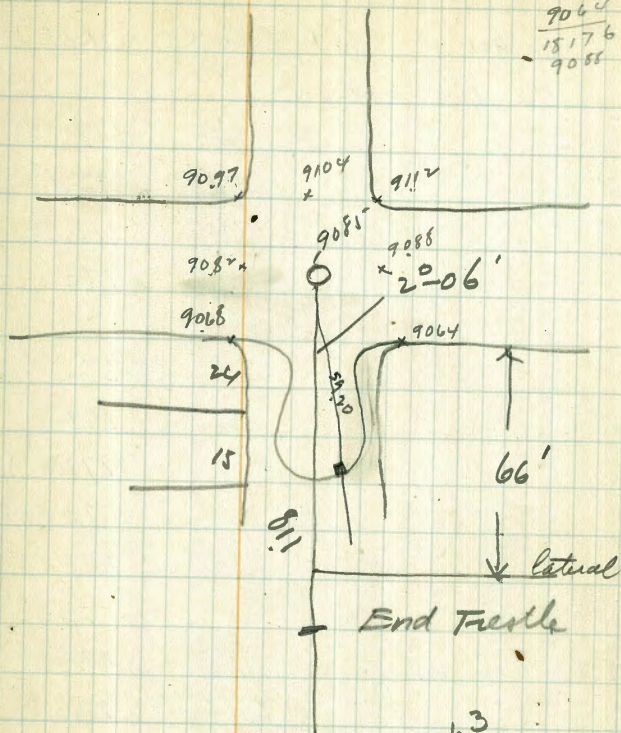 18176
9088
9097
9104
9112
9085
9082
9088
2°-06'
9068
9064
24
59.20
15
66'
118
lateral
End Trestle
.3